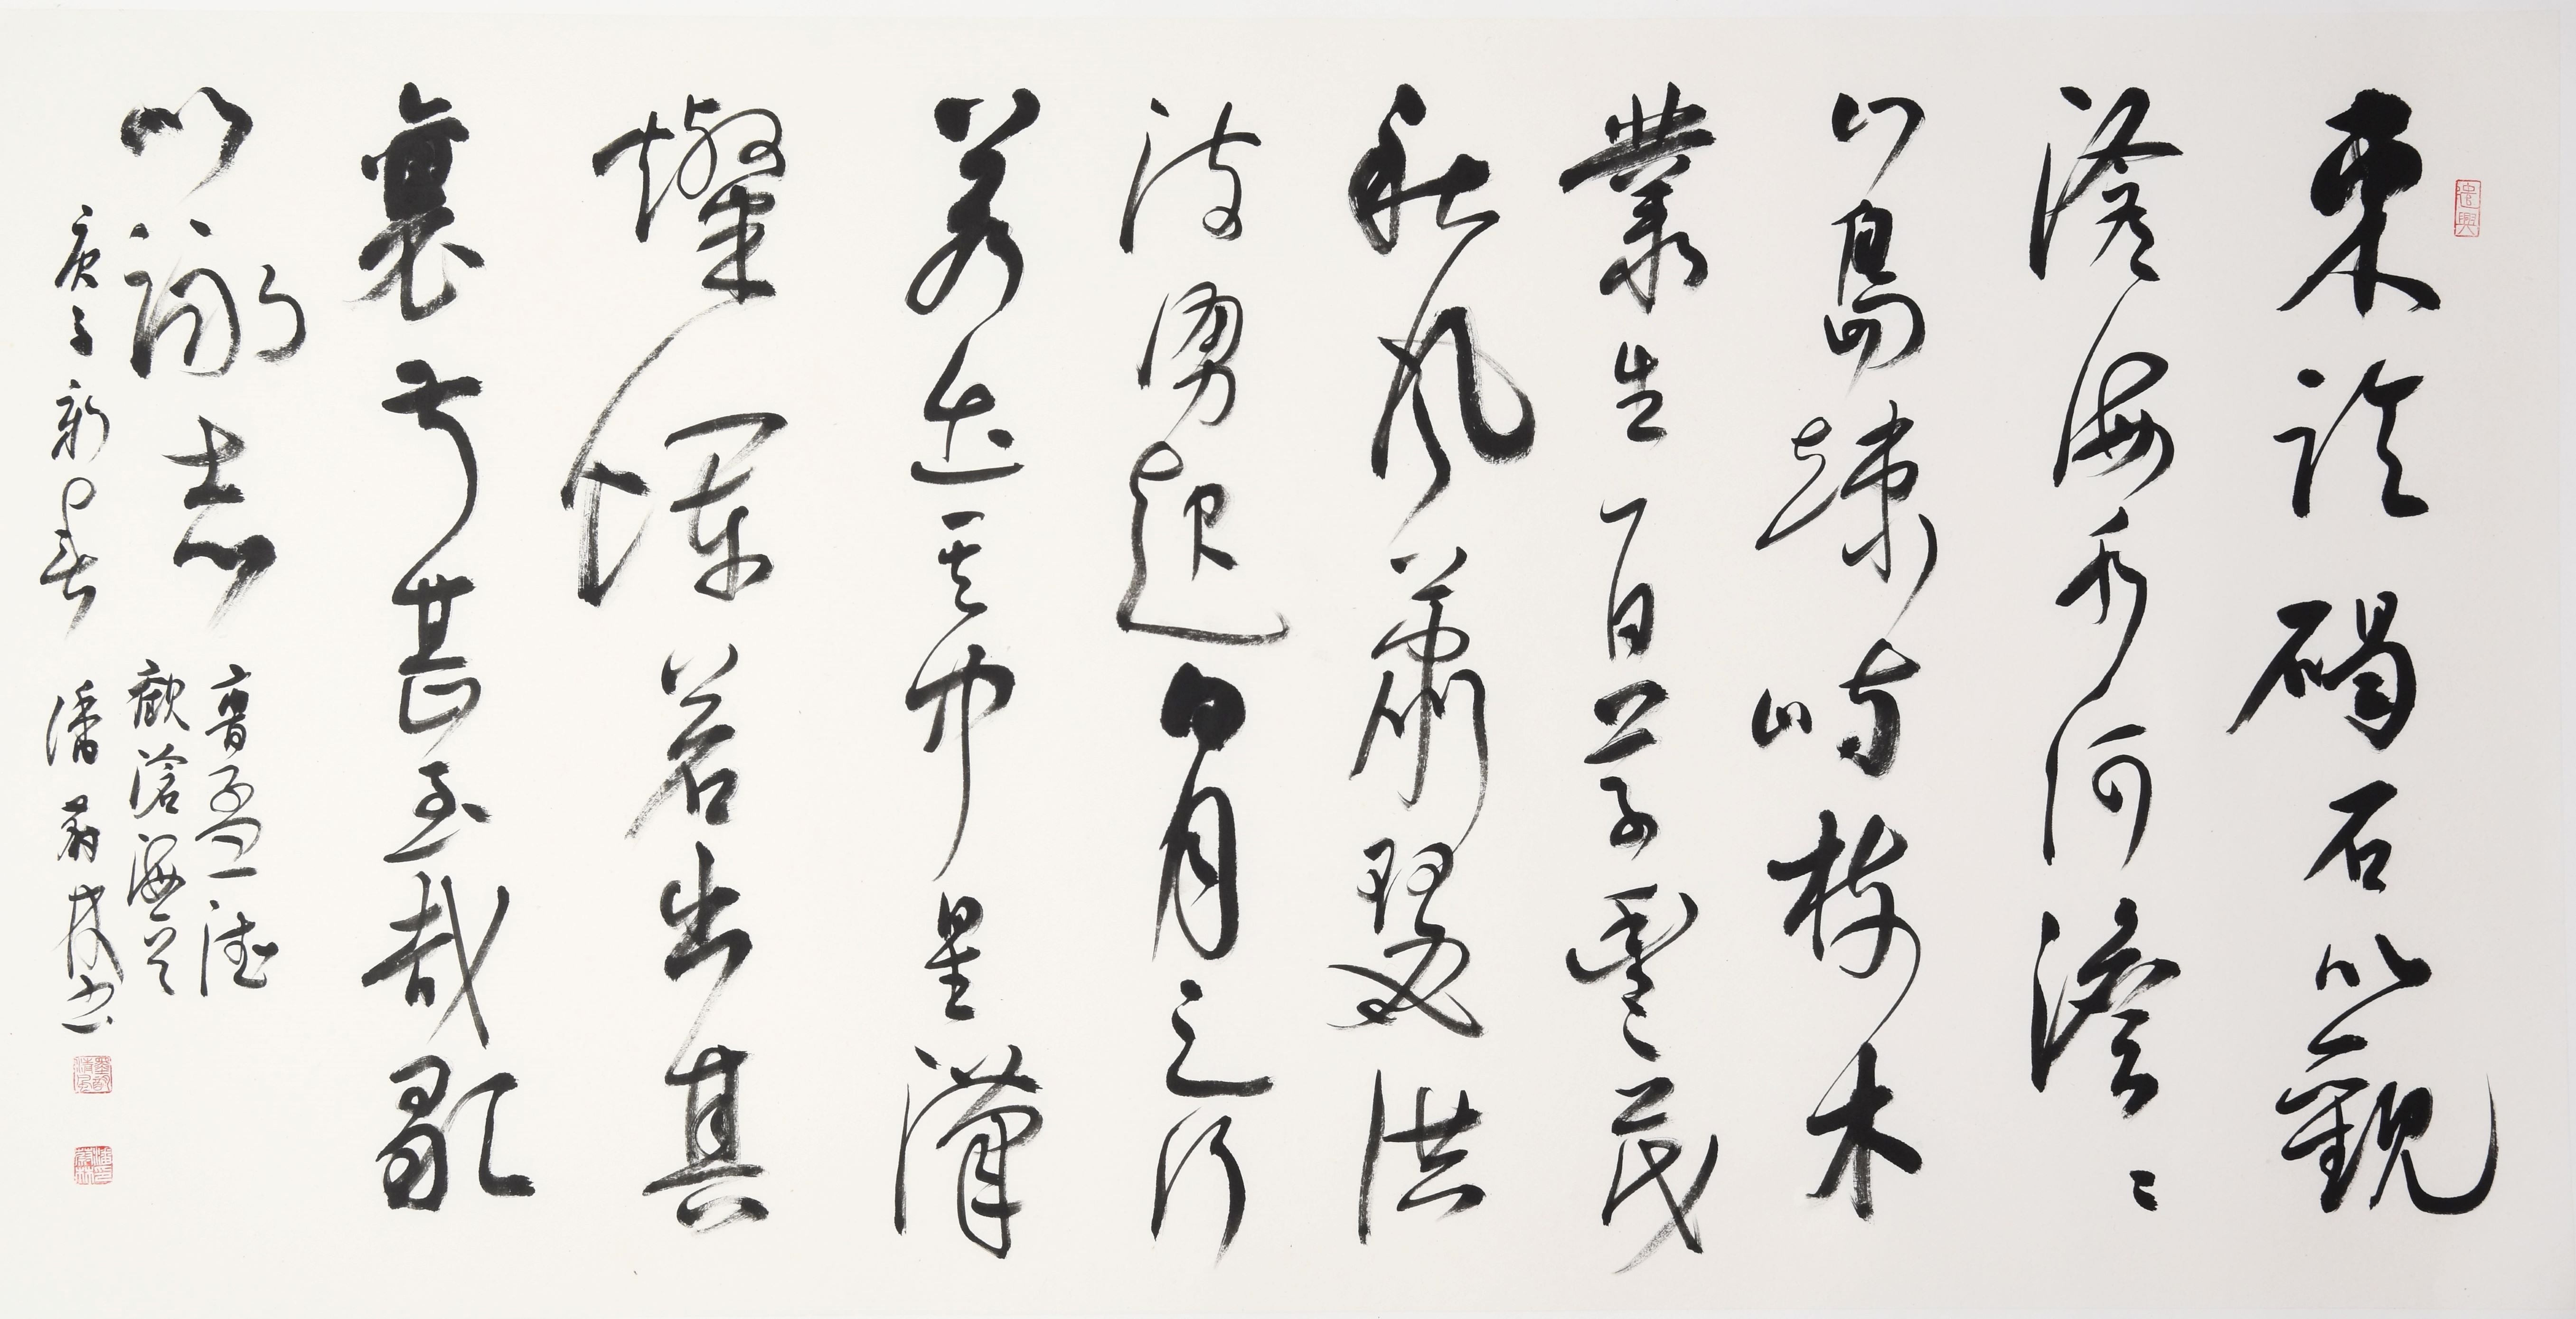 東臨碣石以觀
滄海水何澹〻
山島竦峙樹木
叢生百草豐茂
秋風蕭瑟洪
波湧起日月之行
若出其中星漢
燦爛若出其
裏幸甚至哉歌
以詠志
曹孟德
觀滄海
庚子新春 潘蔚林书